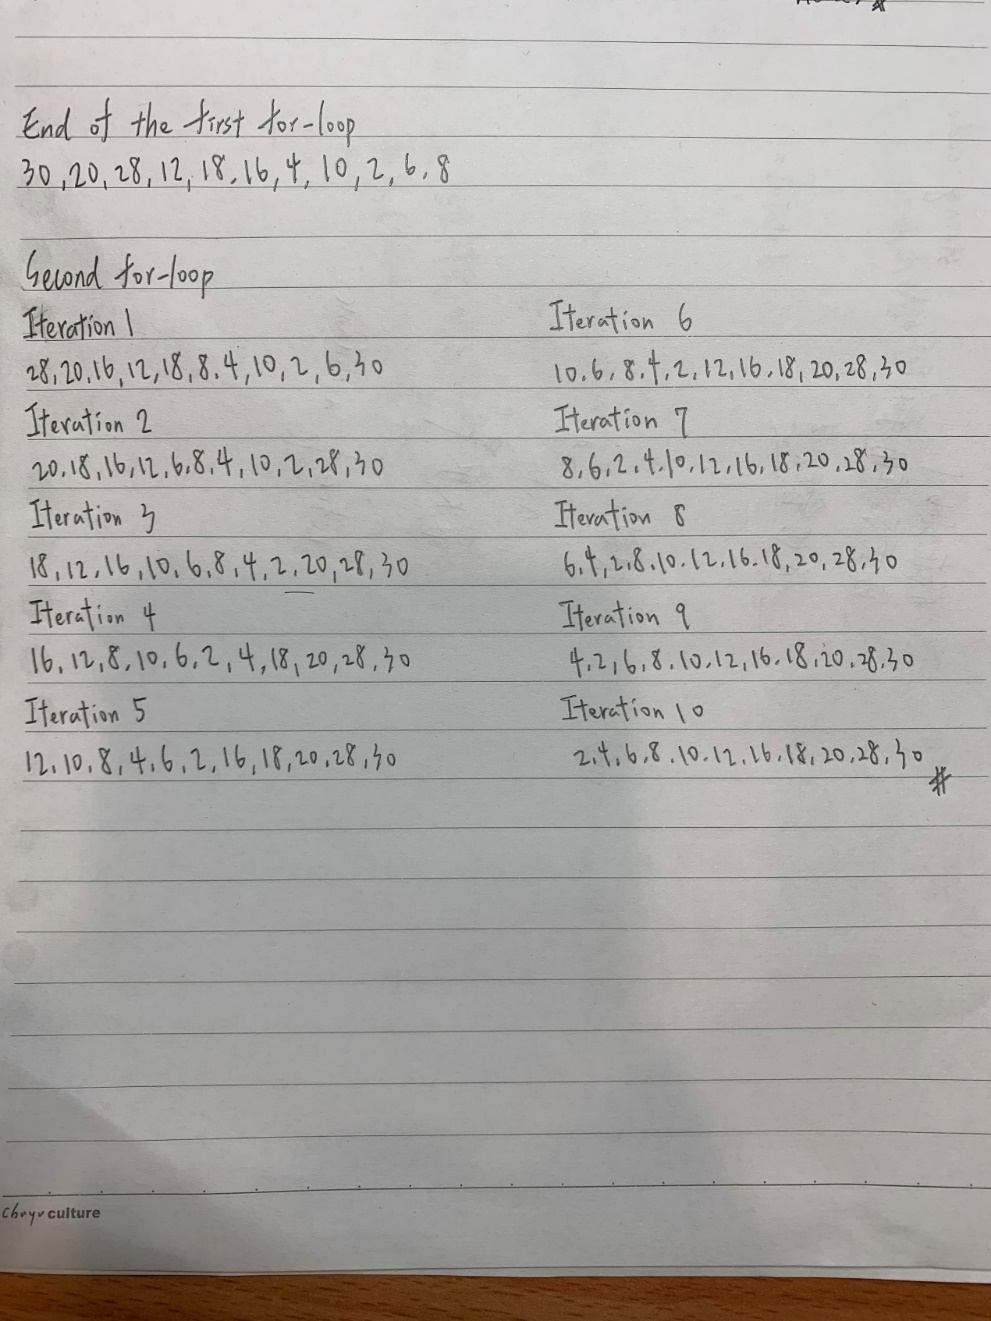 End of the first for-loop
30,20,28,12,18,16,4,10,2,6,8
Second for-loop
Iteration 1
28,20,16,12,18,8,4,10,2,6,30
Iteration 2
20,18,16,12,6,8,4,10,2,28,30
Iteration 3
18,12,16,10,6,8,4,2,20,28,30
Iteration 4
16,12,8,10,6,2,4,18,20,28,30
Iteration 5
12,10,8,4,6,2,16,18,20,28,30
Iteration 6
10,6,8,4,2,12,16,18,20,28,30
Iteration 7
8,6,2,4,10,12,16,18,20,28,30
Iteration 8
6,4,2,8,10,12,16,18,20,28,30
Iteration 9
4,2,6,8,10,12,16,18,20,28,30
Iteration 10
2,4,6,8,10,12,16,18,20,28,30
#
culture